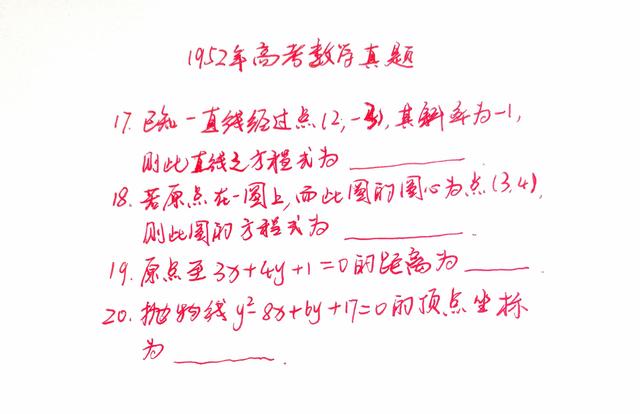 1952年高考数学真题
17. 已知一直线经过点(2,-3),其斜率为-1,
则此直线之方程式为 ________.
18. 若原点在一圆上,而此圆的圆心为点(3,4),
则此圆的方程式为 ________.
19. 原点至3x+4y+1=0的距离为 ____.
20. 抛物线y²-8x+6y+17=0的顶点坐标
为 ______.